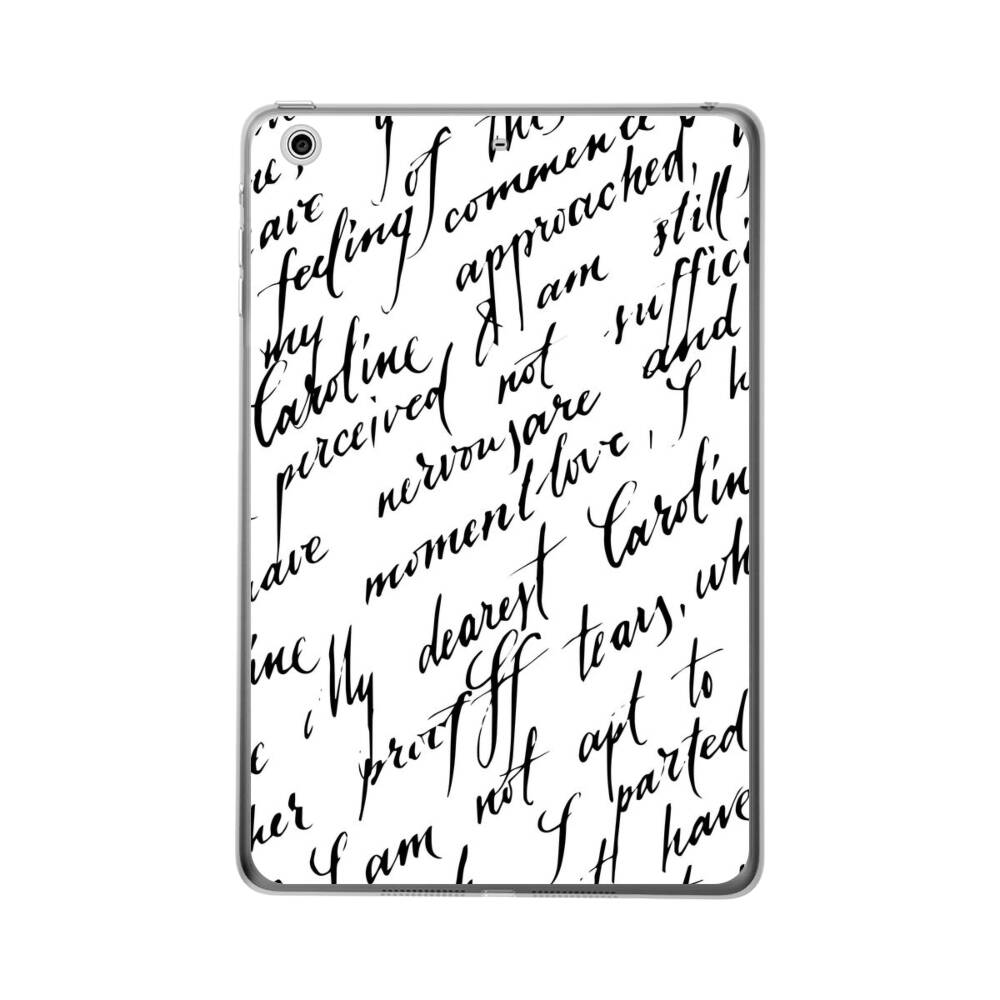 of this
feeling commence
approached,
my still,
Caroline & I am suffici
perceived not and
nervous, are
ave moment love, I h
dearest Carolin
ine, My tears, wh
proof
her not apt to
I am I parted
have